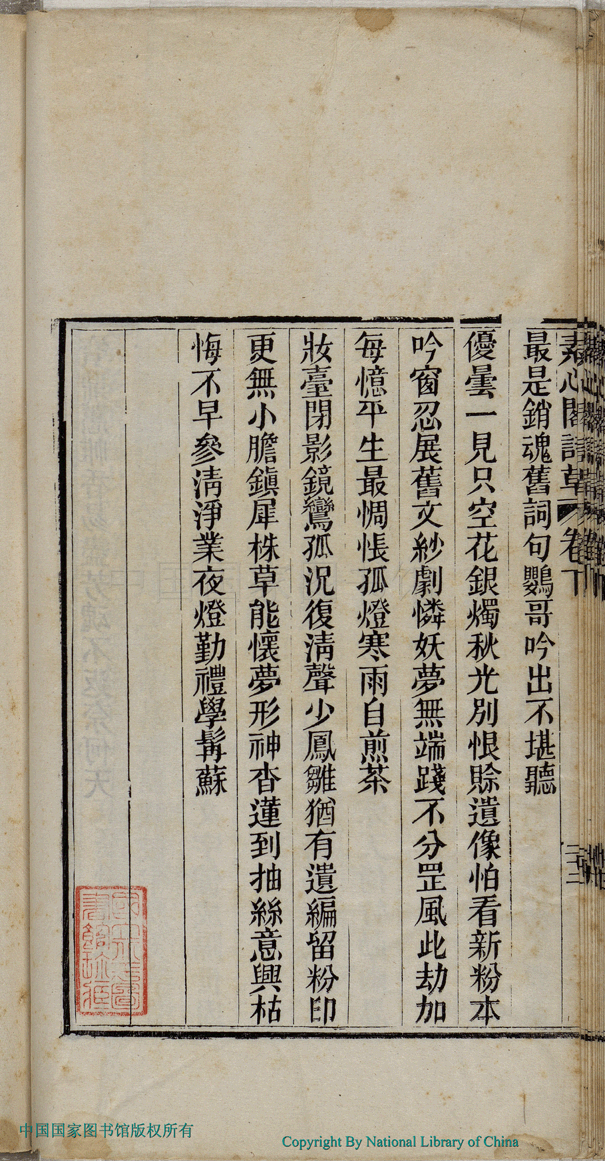 素心閣詩草 卷下 三十二
最是銷魂舊詞句鸚哥吟出不堪聽
優曇一見只空花銀燭秋光別恨賖遺像怕看新粉本
吟窗忍展舊文紗劇憐妖夢無端踐不分罡風此劫加
每憶平生最惆悵孤燈寒雨自煎茶
妝臺閉影鏡鸞孤況復淸聲少鳳雛猶有遺編留粉印
更無小膽鎭犀株草能懷夢形神杳蓮到抽絲意興枯
悔不早參淸淨業夜燈勤禮學髯蘇
中国国家图书馆版权所有
Copyright By National Library of China